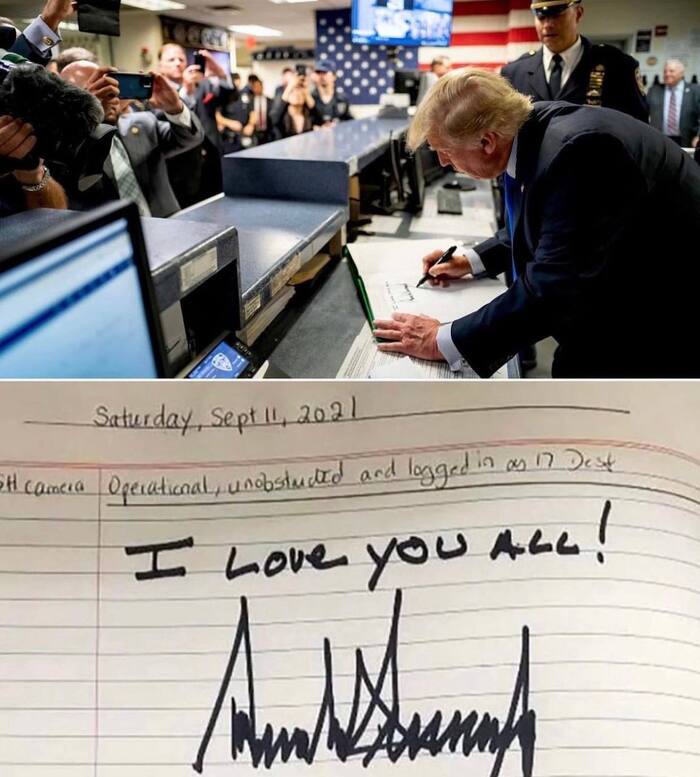 Saturday, Sept 11, 2021
camera Operational, unobstructed and logged in as 17 Desk
I LOVE YOU ALL!